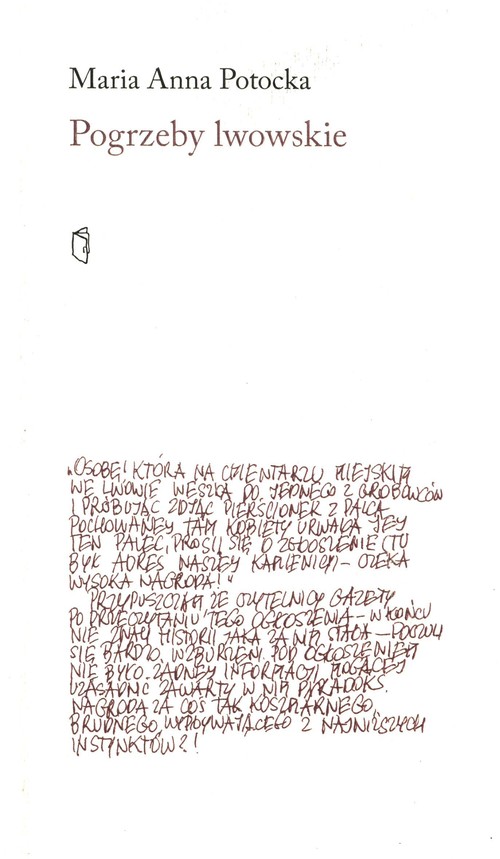 Maria Anna Potocka
Pogrzeby lwowskie
„OSOBĘ! KTÓRA NA CMENTARZU MIEJSKIM
WE LWOWIE WESZŁA DO JEDNEGO Z GROBOWCÓW
I PRÓBUJĄC ZDJĄĆ PIERŚCIONEK Z PALCA
POCHOWANEJ TAM KOBIETY URWAŁA JEJ
TEN PALEC, PROSI SIĘ O ZGŁOSZENIE (TU
BYŁ ADRES NASZEJ KAMIENICY) – CZEKA
WYSOKA NAGRODA!"
PRZYPUSZCZAM ŻE CZYTELNICY GAZETY
PO PRZECZYTANIU TEGO OGŁOSZENIA – W KOŃCU
NIE ZNALI HISTORII JAKA ZA NIM STAŁA – POCZULI
SIĘ BARDZO WZBURZENI. POD OGŁOSZENIEM
NIE BYŁO ŻADNEJ INFORMACJI MOGĄCEJ
UZASADNIĆ ZAWARTY W NIM PARADOKS.
NAGRODA ZA COŚ TAK KOSZMARNEGO,
BRUDNEGO, WYPŁYWAJĄCEGO Z NAJNIŻSZYCH
INSTYNKTÓW?!